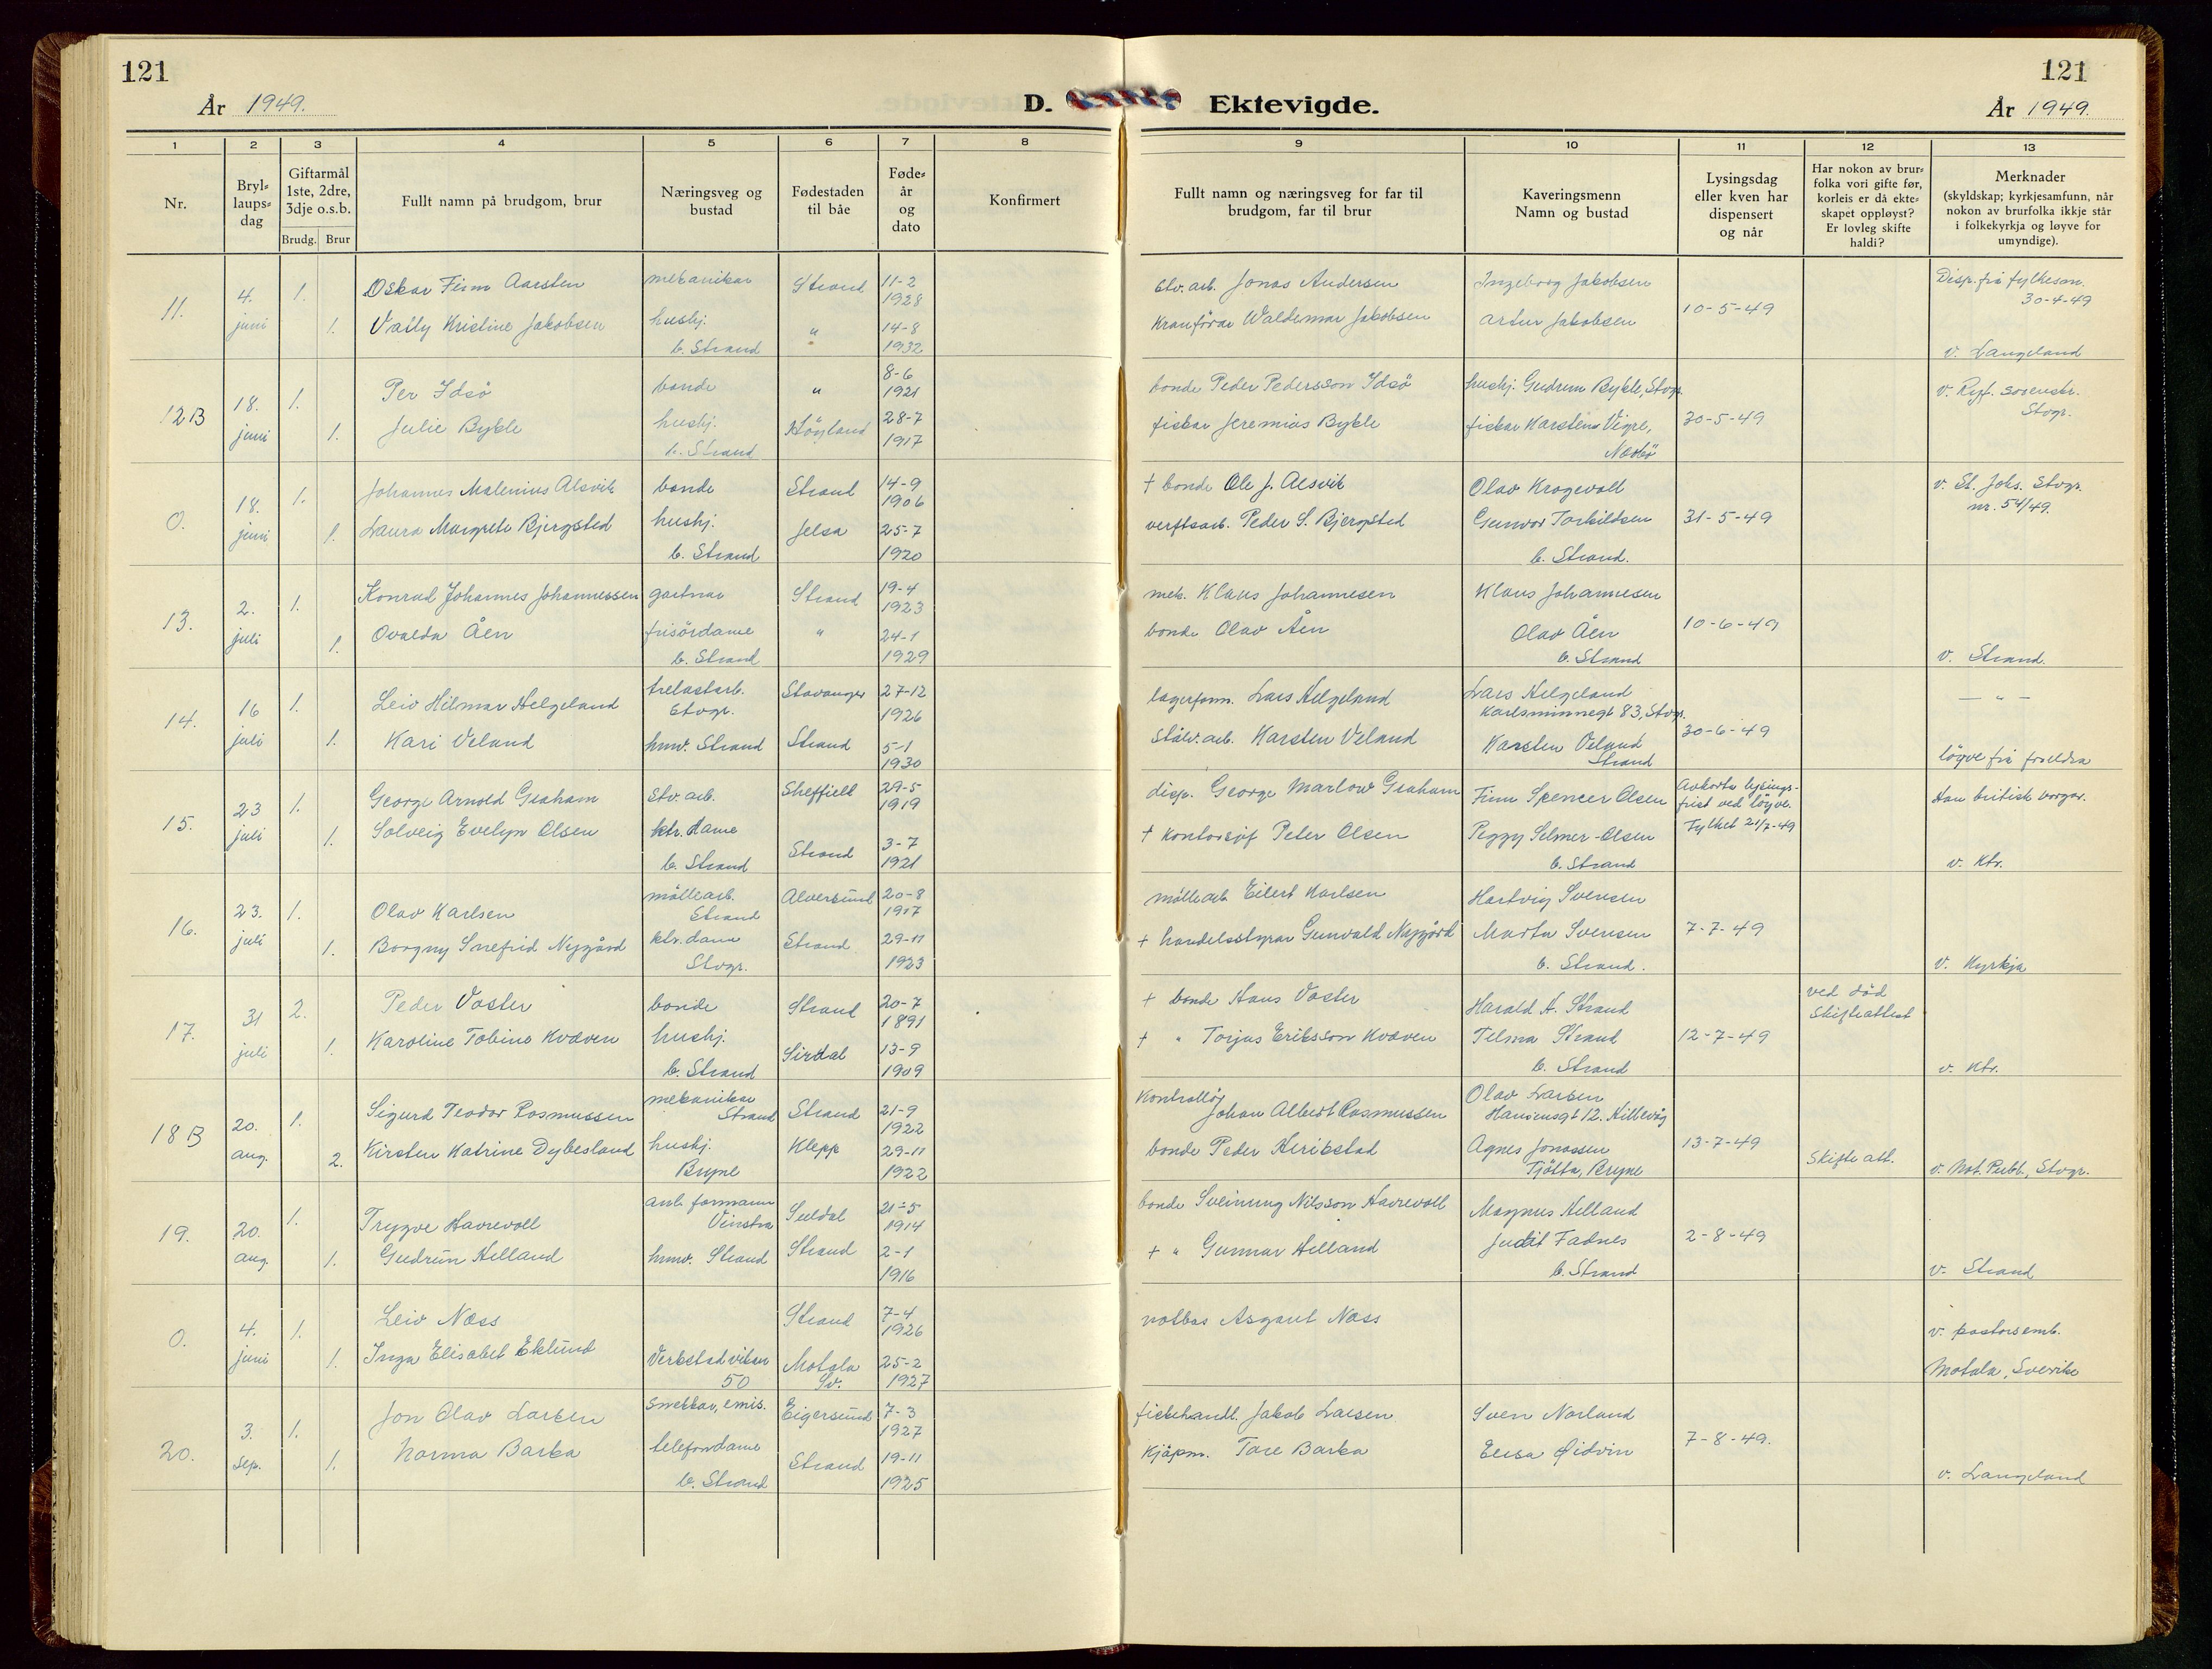 121
År 1949.
D. Ektevigde.
121
År 1949.
1 2 3 4 5 6 7 8 9 10 11 12 13
Nr.
Bryl-
laups-
dag
Giftarmål
1ste, 2dre,
3dje o.s.b.
Brudg. Brur
Fullt namn på brudgom, brur
Næringsveg og
bustad
Fødestaden
til båe
Føde-
år
og
dato
Konfirmert
Fullt namn og næringsveg for far til
brudgom, far til brur
Kaveringsmenn
Namn og bustad
Lysingsdag
eller kven har
dispensert
og når
Har nokon av brur-
folka vori gifte før,
korleis er då ekte-
skapet oppløyst?
Er lovleg skifte
haldi?
Merknader
(skyldskap; kyrkjesamfunn, når
nokon av brurfolka ikkje står
i folkekyrkja og løyve for
umyndige).
11. 4. juni 1. Oskar Finn Aarsten mekanikar Strand 11-2 1928 stv. arb. Jonas Andersen Ingeborg Jakobsen 10-5-49 Disp. frå fylkesm. 30-4-49
1. Vally Kristine Jakobsen hushj. b. Strand " 14-8 1932 Kranförar Waldemar Jakobsen Artur Jakobsen v. Langeland
12B 18. juni 1. Per Idsö bonde " 8-6 1921 bonde Peder Pedersson Idsö hushj. Gudrun Bykle, Stvgr. 30-5-49 v. Ryf. sorenskr. Stvgr.
1. Julie Bykle hushj. b. Strand Höyland 28-7 1917 fiskar Jeremias Bykle fiskar Karsten Vigre, Nærbö
0. 18. juni 1. Johannes Malenius Alsvik bonde Strand 14-9 1906 + bonde Ole J. Alsvik Olav Krogevoll 31-5-49 v. St. Johs. Stvgr. nr. 54/49.
1. Laura Margrete Bjergsted hushj. b. Strand Jelsa 25-7 1920 verftsarb. Peder S. Bjergsted Gunvor Torkildsen b. Strand.
13. 2. juli 1. Konrad Johannes Johannessen gartnar Strand 19-4 1923 mek. Klaus Johannesen Klaus Johannesen 10-6-49
1. Ovalda Åen frisördame b. Strand " 24-1 1929 bonde Olav Åen Olav Åen b. Strand v. Strand.
14. 16 juli 1. Leiv Hilmar Helgeland trelastarb. Stvgr. Stavanger 27-12 1926 lagerform. Lars Helgeland Lars Helgeland Karlsminnegt 83, Stvgr. 30-6-49 — " —
1. Kari Veland hmv. Strand Strand 5-1 1930 Stålv. arb. Karsten Veland Karsten Veland Strand löyve frå foreldra
15. 23 juli 1. George Arnold Graham Stv. arb. Sheffield 29-5 1919 disp. George Marlow Graham Finn Spencer Olsen Avkorta lysings-frist ved löyve. Fylket 21/7-49 Han britisk borgar.
1. Solveig Evelyn Olsen ktr. dame b. Strand Strand 3-7 1921 + kontorsjef Peter Olsen Peggy Selmer-Olsen b. Strand v. Ktr.
16. 23. juli 1. Olav Karlsen möllearb. Strand Alversund 20-8 1917 möllearb. Eilert Karlsen Hartvig Svensen 7-7-49
1. Borgny Snefrid Nygård ktr. dame Stvgr. Strand 29-11 1923 + handelsstyrar Gunvald Nygård Marta Svensen b. Strand. v. Kyrkja
17. 31 juli 2. Peder Vaster bonde Strand 20-7 1891 + bonde Hans Vaster Harald H. Strand 12-7-49 ved död Skifteattest
1. Karoline Tobine Kvæven hushj. b. Strand Sirdal 13-9 1909 + " Torjus Eriksson Kvæven Telma Strand b. Strand v. Ktr.
18B 20. aug. 1. Sigurd Teodor Rasmussen mekanikar Strand Strand 21-9 1922 Kontrollör Johan Albert Rasmussen Olav Larsen Hansensgt 12. Hillevåg 13-7-49
2. Kirsten Katrine Dybesland hushj. Bryne Klepp 29-11 1922 bonde Peder Herikstad Agnes Jonassen Tjötta, Bryne Skifte att. v. Not. Publ., Stvgr.
19. 20. aug. 1. Trygve Havrevoll anl. formann Vinstra Suldal 21-5 1914 bonde Sveinung Nilsson Havrevoll Magnus Helland 2-8-49
1. Gudrun Helland hmv. Strand Strand 2-1 1916 + " Gunnar Helland Judit Fadnes b. Strand v. Strand
0. 4. juni 1. Leiv Næss Strand 7-4 1926 notbas Asgaut Næss v. pastorsemb. Motala, Sverike
1. Inga Elisabet Eklund Verkstadvikan 50 Motala Sv. 25-2 1927
20. 3. sep. 1. Jon Olav Larsen Snekkar, emis. Eigersund 7-3 1927 fiskehandl. Jakob Larsen Sven Norland 7-8-49.
1. Norma Barka telefondame b. Strand Strand 19-11 1925 Kjöpm. Tore Barka Elisa Eidvin v. Langeland